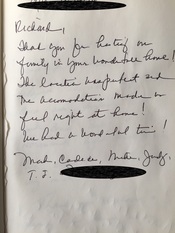 Richard,
Thank you for hosting our
family in your wonderful home!
The location was perfect and
the accomodations made us
feel right at home!
We had a wonderful time!
Mark, Candace, Mike, Judy,
T.J.